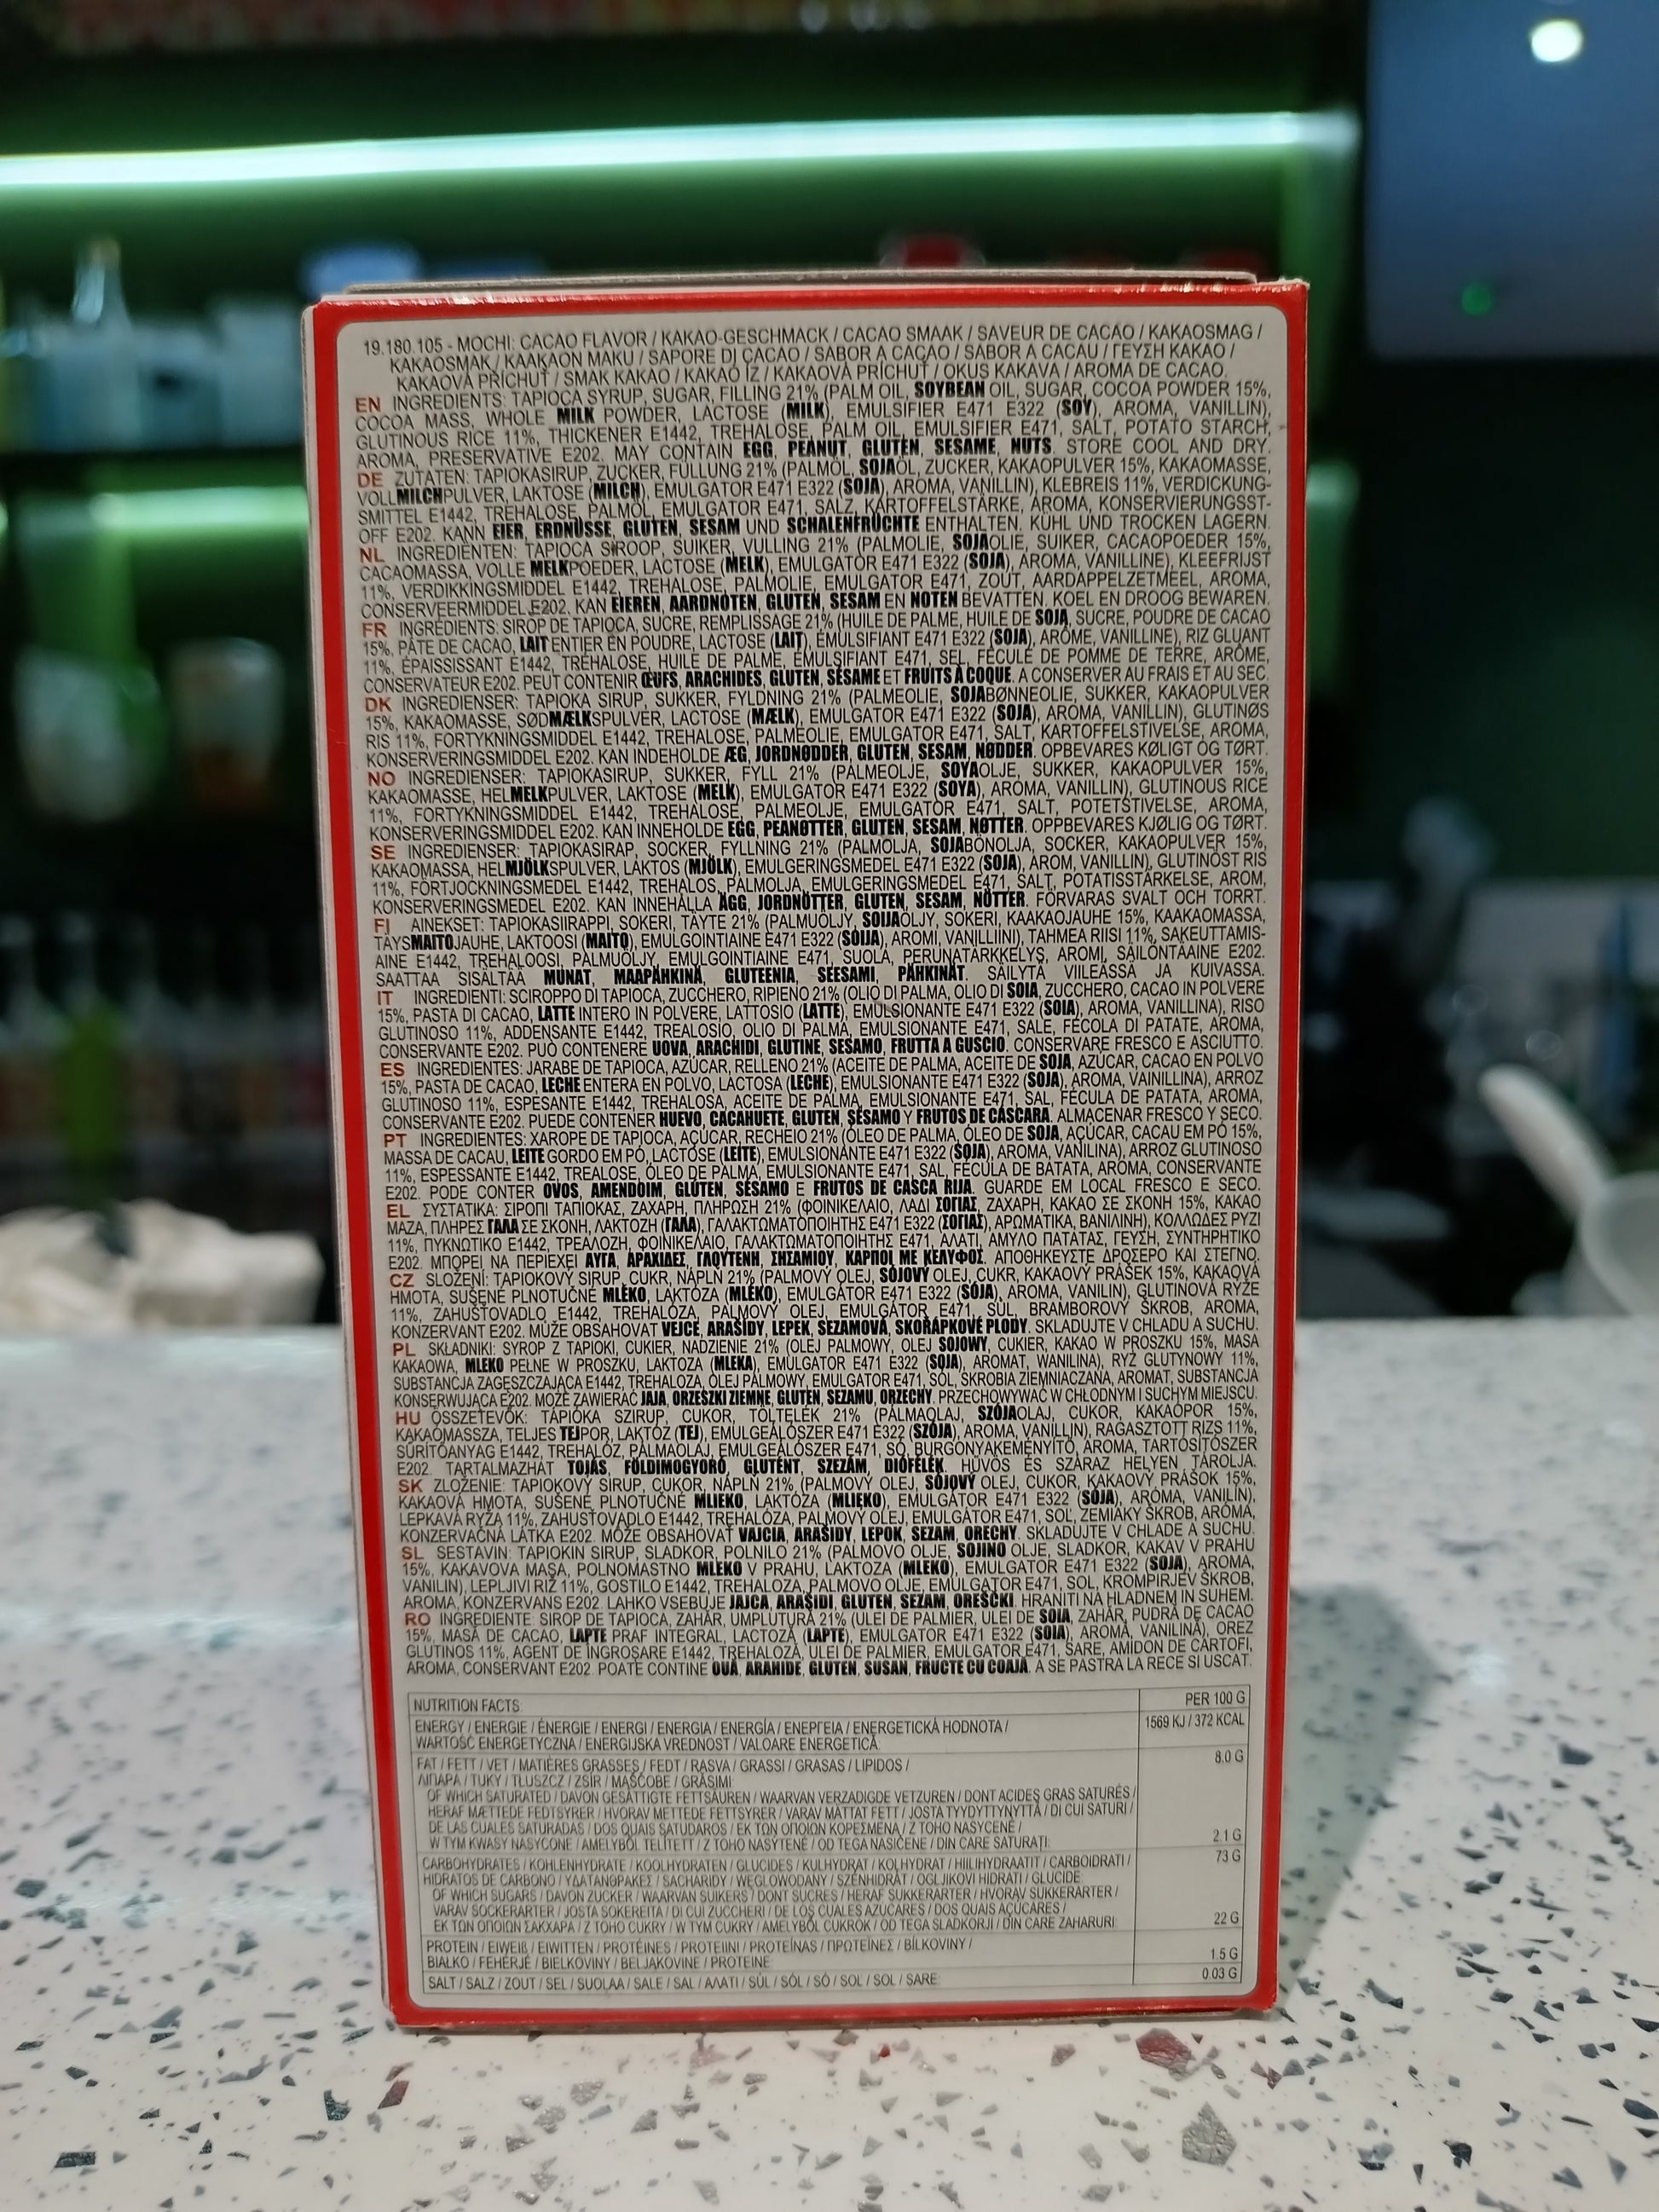 19.180.105 - MOCHI: CACAO FLAVOR / KAKAO-GESCHMACK / CACAO SMAAK / SAVEUR DE CACAO / KAKAOSMAG /
KAKAOSMAK / KAAKAON MAKU / SAPORE DI CACAO / SABOR A CACAO / SABOR A CACAU / ΓΕΥΣΗ ΚΑΚΑΟ /
KAKAOVÁ PŘÍCHUŤ / SMAK KAKAO / KAKAÓ ÍZ / KAKAOVÁ PRÍCHUŤ / OKUS KAKAVA / AROMA DE CACAO.
EN INGREDIENTS: TAPIOCA SYRUP, SUGAR, FILLING 21% (PALM OIL, SOYBEAN OIL, SUGAR, COCOA POWDER 15%,
COCOA MASS, WHOLE MILK POWDER, LACTOSE (MILK), EMULSIFIER E471 E322 (SOY), AROMA, VANILLIN),
GLUTINOUS RICE 11%, THICKENER E1442, TREHALOSE, PALM OIL, EMULSIFIER E471, SALT, POTATO STARCH,
AROMA, PRESERVATIVE E202. MAY CONTAIN EGG, PEANUT, GLUTEN, SESAME, NUTS. STORE COOL AND DRY.
DE ZUTATEN: TAPIOKASIRUP, ZUCKER, FÜLLUNG 21% (PALMÖL, SOJAÖL, ZUCKER, KAKAOPULVER 15%, KAKAOMASSE,
VOLLMILCHPULVER, LAKTOSE (MILCH), EMULGATOR E471 E322 (SOJA), AROMA, VANILLIN), KLEBREIS 11%, VERDICKUNG-
SMITTEL E1442, TREHALOSE, PALMÖL, EMULGATOR E471, SALZ, KARTOFFELSTÄRKE, AROMA, KONSERVIERUNGSST-
OFF E202. KANN EIER, ERDNÜSSE, GLUTEN, SESAM UND SCHALENFRÜCHTE ENTHALTEN. KÜHL UND TROCKEN LAGERN.
NL INGREDIËNTEN: TAPIOCA SIROOP, SUIKER, VULLING 21% (PALMOLIE, SOJAOLIE, SUIKER, CACAOPOEDER 15%,
CACAOMASSA, VOLLE MELKPOEDER, LACTOSE (MELK), EMULGATOR E471 E322 (SOJA), AROMA, VANILLINE), KLEEFRIJST
11%, VERDIKKINGSMIDDEL E1442, TREHALOSE, PALMOLIE, EMULGATOR E471, ZOUT, AARDAPPELZETMEEL, AROMA,
CONSERVEERMIDDEL E202. KAN EIEREN, AARDNOTEN, GLUTEN, SESAM EN NOTEN BEVATTEN. KOEL EN DROOG BEWAREN.
FR INGRÉDIENTS: SIROP DE TAPIOCA, SUCRE, REMPLISSAGE 21% (HUILE DE PALME, HUILE DE SOJA, SUCRE, POUDRE DE CACAO
15%, PÂTE DE CACAO, LAIT ENTIER EN POUDRE, LACTOSE (LAIT), ÉMULSIFIANT E471 E322 (SOJA), ARÔME, VANILLINE), RIZ GLUANT
11%, ÉPAISSISSANT E1442, TRÉHALOSE, HUILE DE PALME, ÉMULSIFIANT E471, SEL, FÉCULE DE POMME DE TERRE, ARÔME,
CONSERVATEUR E202. PEUT CONTENIR ŒUFS, ARACHIDES, GLUTEN, SÉSAME ET FRUITS À COQUE. A CONSERVER AU FRAIS ET AU SEC.
DK INGREDIENSER: TAPIOKA SIRUP, SUKKER, FYLDNING 21% (PALMEOLIE, SOJABØNNEOLIE, SUKKER, KAKAOPULVER
15%, KAKAOMASSE, SØDMÆLKSPULVER, LACTOSE (MÆLK), EMULGATOR E471 E322 (SOJA), AROMA, VANILLIN), GLUTINØS
RIS 11%, FORTYKNINGSMIDDEL E1442, TREHALOSE, PALMEOLIE, EMULGATOR E471, SALT, KARTOFFELSTIVELSE, AROMA,
KONSERVERINGSMIDDEL E202. KAN INDEHOLDE ÆG, JORDNØDDER, GLUTEN, SESAM, NØDDER. OPBEVARES KØLIGT OG TØRT.
NO INGREDIENSER: TAPIOKASIRUP, SUKKER, FYLL 21% (PALMEOLJE, SOYAOLJE, SUKKER, KAKAOPULVER 15%,
KAKAOMASSE, HELMELKPULVER, LAKTOSE (MELK), EMULGATOR E471 E322 (SOYA), AROMA, VANILLIN), GLUTINOUS RICE
11%, FORTYKNINGSMIDDEL E1442, TREHALOSE, PALMEOLJE, EMULGATOR E471, SALT, POTETSTIVELSE, AROMA,
KONSERVERINGSMIDDEL E202. KAN INNEHOLDE EGG, PEANØTTER, GLUTEN, SESAM, NØTTER. OPPBEVARES KJØLIG OG TØRT.
SE INGREDIENSER: TAPIOKASIRAP, SOCKER, FYLLNING 21% (PALMOLJA, SOJABÖNOLJA, SOCKER, KAKAOPULVER 15%,
KAKAOMASSA, HELMJÖLKSPULVER, LAKTOS (MJÖLK), EMULGERINGSMEDEL E471 E322 (SOJA), AROM, VANILLIN), GLUTINÖST RIS
11%, FÖRTJOCKNINGSMEDEL E1442, TREHALOS, PALMOLJA, EMULGERINGSMEDEL E471, SALT, POTATISSTÄRKELSE, AROM,
KONSERVERINGSMEDEL E202. KAN INNEHÅLLA ÄGG, JORDNÖTTER, GLUTEN, SESAM, NÖTTER. FÖRVARAS SVALT OCH TORRT.
FI AINEKSET: TAPIOKASIIRAPPI, SOKERI, TÄYTE 21% (PALMUÖLJY, SOIJAÖLJY, SOKERI, KAAKAOJAUHE 15%, KAAKAOMASSA,
TÄYSMAITOJAUHE, LAKTOOSI (MAITO), EMULGOINTIAINE E471 E322 (SOIJA), AROMI, VANILLIINI), TAHMEA RIISI 11%, SAKEUTTAMIS-
AINE E1442, TREHALOOSI, PALMUÖLJY, EMULGOINTIAINE E471, SUOLA, PERUNATÄRKKELYS, AROMI, SÄILÖNTÄAINE E202.
SAATTAA SISÄLTÄÄ MUNAT, MAAPÄHKINÄ, GLUTEENIA, SEESAMI, PÄHKINÄT. SÄILYTÄ VIILEÄSSÄ JA KUIVASSA.
IT INGREDIENTI: SCIROPPO DI TAPIOCA, ZUCCHERO, RIPIENO 21% (OLIO DI PALMA, OLIO DI SOIA, ZUCCHERO, CACAO IN POLVERE
15%, PASTA DI CACAO, LATTE INTERO IN POLVERE, LATTOSIO (LATTE), EMULSIONANTE E471 E322 (SOIA), AROMA, VANILLINA), RISO
GLUTINOSO 11%, ADDENSANTE E1442, TREALOSIO, OLIO DI PALMA, EMULSIONANTE E471, SALE, FECOLA DI PATATE, AROMA,
CONSERVANTE E202. PUÒ CONTENERE UOVA, ARACHIDI, GLUTINE, SESAMO, FRUTTA A GUSCIO. CONSERVARE FRESCO E ASCIUTTO.
ES INGREDIENTES: JARABE DE TAPIOCA, AZÚCAR, RELLENO 21% (ACEITE DE PALMA, ACEITE DE SOJA, AZÚCAR, CACAO EN POLVO
15%, PASTA DE CACAO, LECHE ENTERA EN POLVO, LACTOSA (LECHE), EMULSIONANTE E471 E322 (SOJA), AROMA, VAINILLINA), ARROZ
GLUTINOSO 11%, ESPESANTE E1442, TREHALOSA, ACEITE DE PALMA, EMULSIONANTE E471, SAL, FÉCULA DE PATATA, AROMA,
CONSERVANTE E202. PUEDE CONTENER HUEVO, CACAHUETE, GLUTEN, SÉSAMO Y FRUTOS DE CÁSCARA. ALMACENAR FRESCO Y SECO.
PT INGREDIENTES: XAROPE DE TAPIOCA, AÇÚCAR, RECHEIO 21% (ÓLEO DE PALMA, ÓLEO DE SOJA, AÇÚCAR, CACAU EM PÓ 15%,
MASSA DE CACAU, LEITE GORDO EM PÓ, LACTOSE (LEITE), EMULSIONANTE E471 E322 (SOJA), AROMA, VANILINA), ARROZ GLUTINOSO
11%, ESPESSANTE E1442, TREALOSE, ÓLEO DE PALMA, EMULSIONANTE E471, SAL, FÉCULA DE BATATA, AROMA, CONSERVANTE
E202. PODE CONTER OVOS, AMENDOIM, GLÚTEN, SÉSAMO E FRUTOS DE CASCA RIJA. GUARDE EM LOCAL FRESCO E SECO.
EL ΣΥΣΤΑΤΙΚΑ: ΣΙΡΟΠΙ ΤΑΠΙΟΚΑΣ, ΖΑΧΑΡΗ, ΠΛΗΡΩΣΗ 21% (ΦΟΙΝΙΚΕΛΑΙΟ, ΛΑΔΙ ΣΟΓΙΑΣ, ΖΑΧΑΡΗ, ΚΑΚΑΟ ΣΕ ΣΚΟΝΗ 15%, ΚΑΚΑΟ
ΜΑΖΑ, ΠΛΗΡΕΣ ΓΑΛΑ ΣΕ ΣΚΟΝΗ, ΛΑΚΤΟΖΗ (ΓΑΛΑ), ΓΑΛΑΚΤΩΜΑΤΟΠΟΙΗΤΗΣ E471 E322 (ΣΟΓΙΑΣ), ΑΡΩΜΑΤΙΚΑ, ΒΑΝΙΛΙΝΗ), ΚΟΛΛΩΔΕΣ ΡΥΖΙ
11%, ΠΥΚΝΩΤΙΚΟ E1442, ΤΡΕΑΛΟΖΗ, ΦΟΙΝΙΚΕΛΑΙΟ, ΓΑΛΑΚΤΩΜΑΤΟΠΟΙΗΤΗΣ E471, ΑΛΑΤΙ, ΑΜΥΛΟ ΠΑΤΑΤΑΣ, ΓΕΥΣΗ, ΣΥΝΤΗΡΗΤΙΚΟ
E202. ΜΠΟΡΕΙ ΝΑ ΠΕΡΙΕΧΕΙ ΑΥΓΑ, ΑΡΑΧΙΔΕΣ, ΓΛΟΥΤΕΝΗ, ΣΗΣΑΜΙΟΥ, ΚΑΡΠΟΙ ΜΕ ΚΕΛΥΦΟΣ. ΑΠΟΘΗΚΕΥΣΤΕ ΔΡΟΣΕΡΟ ΚΑΙ ΣΤΕΓΝΟ.
CZ SLOŽENÍ: TAPIOKOVÝ SIRUP, CUKR, NÁPLŇ 21% (PALMOVÝ OLEJ, SÓJOVÝ OLEJ, CUKR, KAKAOVÝ PRÁŠEK 15%, KAKAOVÁ
HMOTA, SUŠENÉ PLNOTUČNÉ MLÉKO, LAKTÓZA (MLÉKO), EMULGÁTOR E471 E322 (SÓJA), AROMA, VANILIN), GLUTINOVÁ RÝŽE
11%, ZAHUŠŤOVADLO E1442, TREHALÓZA, PALMOVÝ OLEJ, EMULGÁTOR E471, SŮL, BRAMBOROVÝ ŠKROB, AROMA,
KONZERVANT E202. MŮŽE OBSAHOVAT VEJCE, ARAŠÍDY, LEPEK, SEZAMOVÁ, SKOŘÁPKOVÉ PLODY. SKLADUJTE V CHLADU A SUCHU.
PL SKŁADNIKI: SYROP Z TAPIOKI, CUKIER, NADZIENIE 21% (OLEJ PALMOWY, OLEJ SOJOWY, CUKIER, KAKAO W PROSZKU 15%, MASA
KAKAOWA, MLEKO PEŁNE W PROSZKU, LAKTOZA (MLEKA), EMULGATOR E471 E322 (SOJA), AROMAT, WANILINA), RYŻ GLUTYNOWY 11%,
SUBSTANCJA ZAGĘSZCZAJĄCA E1442, TREHALOZA, OLEJ PALMOWY, EMULGATOR E471, SÓL, SKROBIA ZIEMNIACZANA, AROMAT, SUBSTANCJA
KONSERWUJĄCA E202. MOŻE ZAWIERAĆ JAJA, ORZESZKI ZIEMNE, GLUTEN, SEZAMU, ORZECHY. PRZECHOWYWAĆ W CHŁODNYM I SUCHYM MIEJSCU.
HU ÖSSZETEVŐK: TÁPIÓKA SZIRUP, CUKOR, TÖLTELÉK 21% (PÁLMAOLAJ, SZÓJAOLAJ, CUKOR, KAKAÓPOR 15%,
KAKAÓMASSZA, TELJES TEJPOR, LAKTÓZ (TEJ), EMULGEÁLÓSZER E471 E322 (SZÓJA), AROMA, VANILLIN), RAGASZTOTT RIZS 11%,
SŰRÍTŐANYAG E1442, TREHALÓZ, PÁLMAOLAJ, EMULGEÁLÓSZER E471, SÓ, BURGONYAKEMÉNYÍTŐ, AROMA, TARTÓSÍTÓSZER
E202. TARTALMAZHAT TOJÁS, FÖLDIMOGYORÓ, GLUTÉNT, SZEZÁM, DIÓFÉLÉK. HŰVÖS ÉS SZÁRAZ HELYEN TÁROLJA.
SK ZLOŽENIE: TAPIOKOVÝ SIRUP, CUKOR, NÁPLŇ 21% (PALMOVÝ OLEJ, SÓJOVÝ OLEJ, CUKOR, KAKAOVÝ PRÁŠOK 15%,
KAKAOVÁ HMOTA, SUŠENÉ PLNOTUČNÉ MLIEKO, LAKTÓZA (MLIEKO), EMULGÁTOR E471 E322 (SÓJA), ARÓMA, VANILÍN),
LEPKAVÁ RYŽA 11%, ZAHUSŤOVADLO E1442, TREHALÓZA, PALMOVÝ OLEJ, EMULGÁTOR E471, SOĽ, ZEMIAKY ŠKROB, ARÓMA,
KONZERVAČNÁ LÁTKA E202. MÔŽE OBSAHOVAŤ VAJCIA, ARAŠIDY, LEPOK, SEZAM, ORECHY. SKLADUJTE V CHLADE A SUCHU.
SL SESTAVIN: TAPIOKIN SIRUP, SLADKOR, POLNILO 21% (PALMOVO OLJE, SOJINO OLJE, SLADKOR, KAKAV V PRAHU
15%, KAKAVOVA MASA, POLNOMASTNO MLEKO V PRAHU, LAKTOZA (MLEKO), EMULGATOR E471 E322 (SOJA), AROMA,
VANILIN), LEPLJIVI RIŽ 11%, GOSTILO E1442, TREHALOZA, PALMOVO OLJE, EMULGATOR E471, SOL, KROMPIRJEV ŠKROB,
AROMA, KONZERVANS E202. LAHKO VSEBUJE JAJCA, ARAŠIDI, GLUTEN, SEZAM, OREŠČKI. HRANITI NA HLADNEM IN SUHEM.
RO INGREDIENTE: SIROP DE TAPIOCA, ZAHĂR, UMPLUTURĂ 21% (ULEI DE PALMIER, ULEI DE SOIA, ZAHĂR, PUDRĂ DE CACAO
15%, MASĂ DE CACAO, LAPTE PRAF INTEGRAL, LACTOZĂ (LAPTE), EMULGATOR E471 E322 (SOIA), AROMĂ, VANILINĂ), OREZ
GLUTINOS 11%, AGENT DE ÎNGROȘARE E1442, TREHALOZĂ, ULEI DE PALMIER, EMULGATOR E471, SARE, AMIDON DE CARTOFI,
AROMA, CONSERVANT E202. POATE CONTINE OUĂ, ARAHIDE, GLUTEN, SUSAN, FRUCTE CU COAJĂ. A SE PASTRA LA RECE SI USCAT.
NUTRITION FACTS: PER 100 G
ENERGY / ENERGIE / ÉNERGIE / ENERGI / ENERGIA / ENERGÍA / ΕΝΕΡΓΕΙΑ / ENERGETICKÁ HODNOTA / 1569 KJ / 372 KCAL
WARTOŚĆ ENERGETYCZNA / ENERGIJSKA VREDNOST / VALOARE ENERGETICĂ:
FAT / FETT / VET / MATIÈRES GRASSES / FEDT / RASVA / GRASSI / GRASAS / LIPIDOS / 8.0 G
ΛΙΠΑΡΑ / TUKY / TŁUSZCZ / ZSÍR / MAŠČOBE / GRĂSIMI:
OF WHICH SATURATED / DAVON GESÄTTIGTE FETTSÄUREN / WAARVAN VERZADIGDE VETZUREN / DONT ACIDES GRAS SATURÉS /
HERAF MÆTTEDE FEDTSYRER / HVORAV METTEDE FETTSYRER / VARAV MÄTTAT FETT / JOSTA TYYDYTTYNYTTÄ / DI CUI SATURI /
DE LAS CUALES SATURADAS / DOS QUAIS SATUDAROS / ΕΚ ΤΩΝ ΟΠΟΙΩΝ ΚΟΡΕΣΜΕΝΑ / Z TOHO NASYCENÉ /
W TYM KWASY NASYCONE / AMELYBŐL TELÍTETT / Z TOHO NASÝTENÉ / OD TEGA NASIČENE / DIN CARE SATURAȚI: 2.1 G
CARBOHYDRATES / KOHLENHYDRATE / KOOLHYDRATEN / GLUCIDES / KULHYDRAT / KOLHYDRAT / HIILIHYDRAATIT / CARBOIDRATI / 73 G
HIDRATOS DE CARBONO / ΥΔΑΤΑΝΘΡΑΚΕΣ / SACHARIDY / WĘGLOWODANY / SZÉNHIDRÁT / OGLJIKOVI HIDRATI / GLUCIDE:
OF WHICH SUGARS / DAVON ZUCKER / WAARVAN SUIKERS / DONT SUCRES / HERAF SUKKERARTER / HVORAV SUKKERARTER /
VARAV SOCKERARTER / JOSTA SOKEREITA / DI CUI ZUCCHERI / DE LOS CUALES AZÚCARES / DOS QUAIS AÇÚCARES /
ΕΚ ΤΩΝ ΟΠΟΙΩΝ ΣΑΚΧΑΡΑ / Z TOHO CUKRY / W TYM CUKRY / AMELYBŐL CUKROK / OD TEGA SLADKORJI / DIN CARE ZAHARURI: 22 G
PROTEIN / EIWEIß / EIWITTEN / PROTÉINES / PROTEIINI / PROTEÍNAS / ΠΡΩΤΕΪΝΕΣ / BÍLKOVINY / 1.5 G
BIAŁKO / FEHÉRJE / BIELKOVINY / BELJAKOVINE / PROTEINE:
SALT / SALZ / ZOUT / SEL / SUOLAA / SALE / SAL / ΑΛΑΤΙ / SŮL / SÓL / SÓ / SOĽ / SOL / SARE: 0.03 G